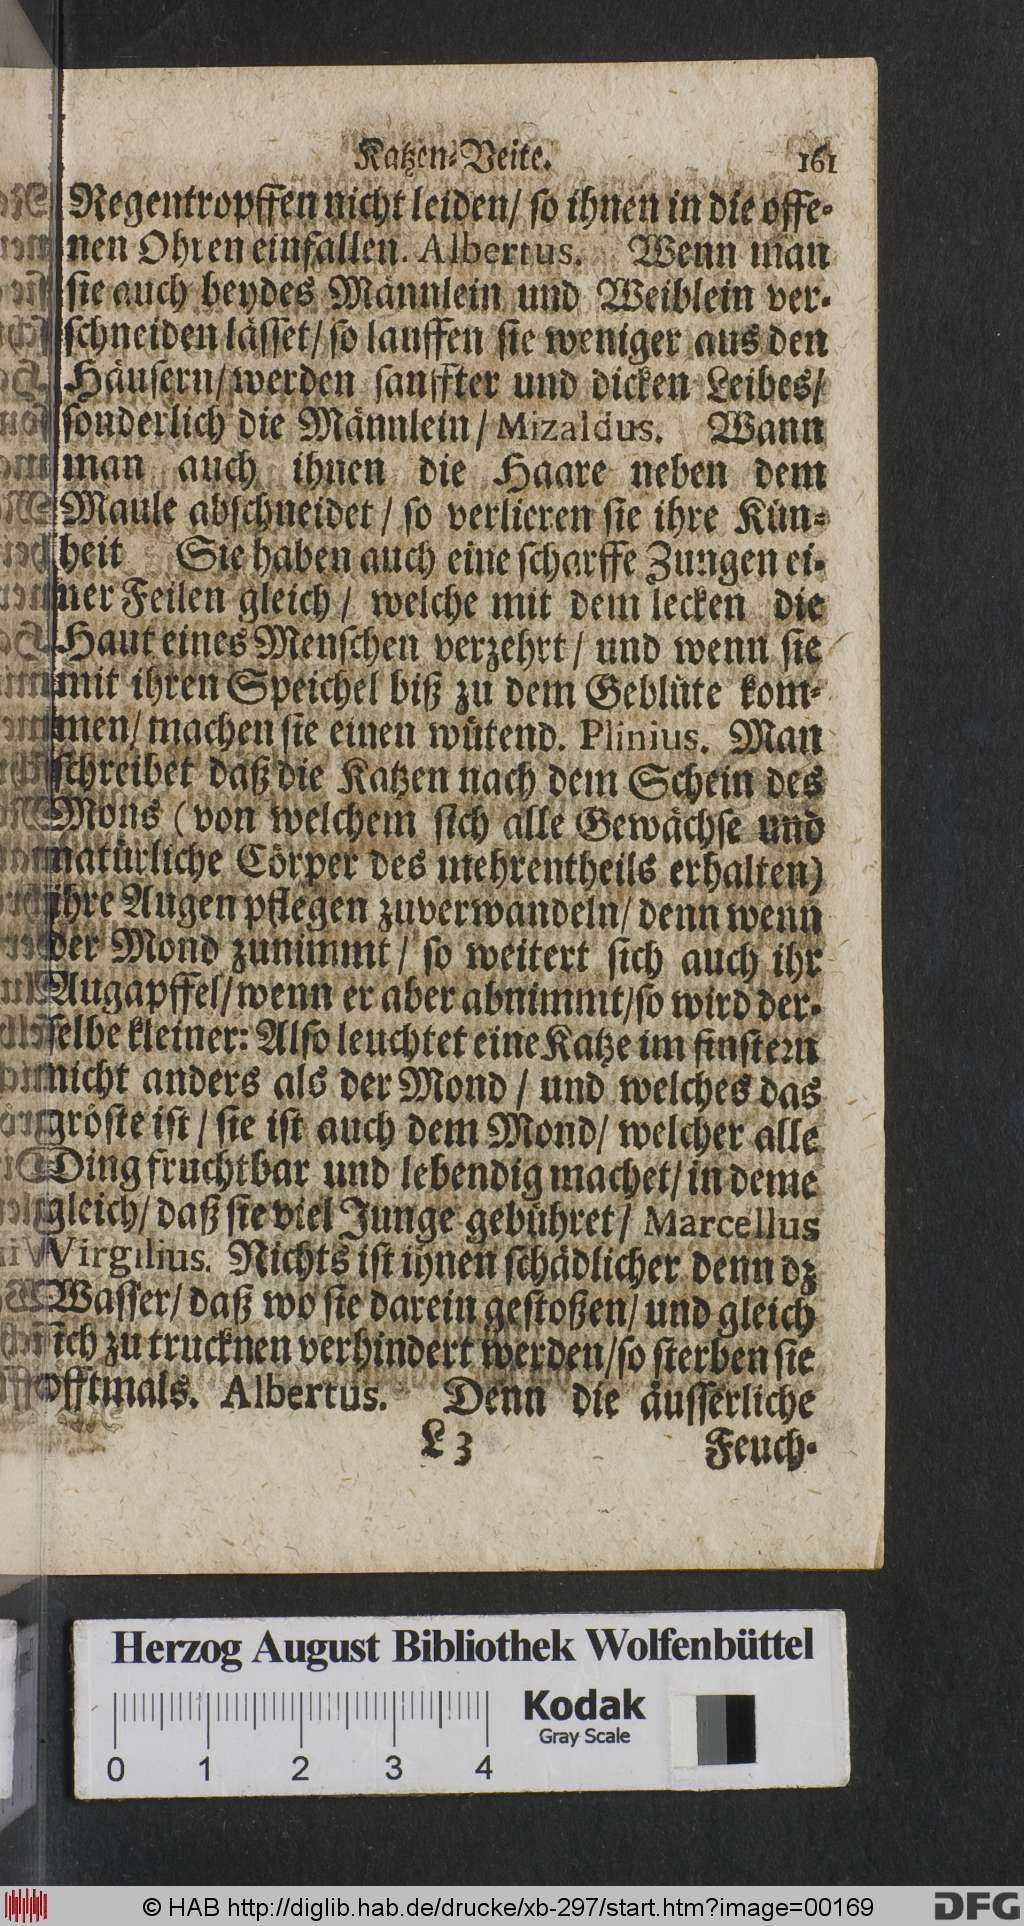 Katzen-Veite. 161
Regentropffen nicht leiden/ so ihnen in die offe-
nen Ohren einfallen. Albertus. Wenn man
sie auch beydes Männlein und Weiblein ver-
schneiden lässet/ so lauffen sie weniger aus den
Häusern/ werden sanffter und dicken Leibes/
sonderlich die Männlein/ Mizaldus. Wann
man auch ihnen die Haare neben dem
Maule abschneidet/ so verlieren sie ihre Kün-
heit Sie haben auch eine scharffe Zungen ei-
ner Feilen gleich/ welche mit dem lecken die
Haut eines Menschen verzehrt/ und wenn sie
mit ihren Speichel biß zu dem Geblüte kom-
men/ machen sie einen wütend. Plinius. Man
schreibet daß die Katzen nach dem Schein des
Mons (von welchem sich alle Gewächse und
natürliche Cörper des mehrentheils erhalten)
ihre Augen pflegen zuverwandeln/ denn wenn
der Mond zunimmt/ so weitert sich auch ihr
Augapffel/ wenn er aber abnimmt/ so wird der-
selbe kleiner: Also leuchtet eine Katze im finstern
nicht anders als der Mond/ und welches das
gröste ist/ sie ist auch dem Mond/ welcher alle
Ding fruchtbar und lebendig machet/ in deme
gleich/ daß sie viel Junge gebühret/ Marcellus
Virgilius. Nichts ist ihnen schädlicher denn dz
Wasser/ daß wo sie darein gestoßen/ und gleich
sich zu trucknen verhindert werden/ so sterben sie
offtmals. Albertus. Denn die äusserliche
L 3 Feuch-
Herzog August Bibliothek Wolfenbüttel
Kodak
Gray Scale
0 1 2 3 4
© HAB http://diglib.hab.de/drucke/xb-297/start.htm?image=00169
DFG